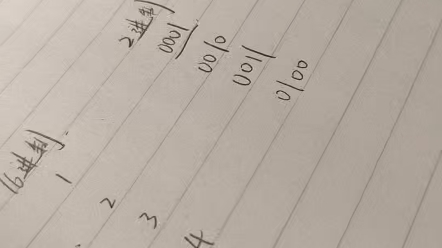 16进制 2进制
1 0001
2 0010
3 0011
4 0100